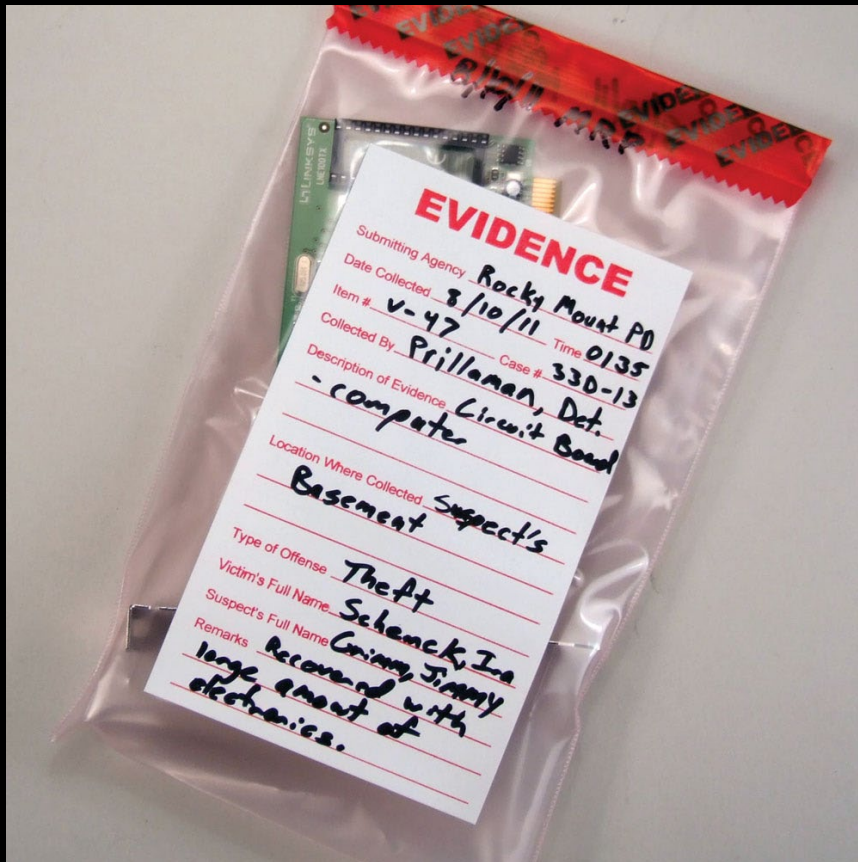 EVIDENCE
EVIDENCE
EVIDENCE
EVIDENCE
EVIDENCE
MRP
LINKSYS
LNE100TX
EVIDENCE
Submitting Agency Rocky Mount PD
Date Collected 8/10/11 Time 0135
Item # V-47 Case # 33D-13
Collected By Prillaman, Det.
Description of Evidence Circuit Board
- computer
Location Where Collected Suspect's
Basement
Type of Offense Theft
Victim's Full Name Schemck, Ira
Suspect's Full Name Grimm, Jimmy
Remarks Recovered with
large amount of
electronics.